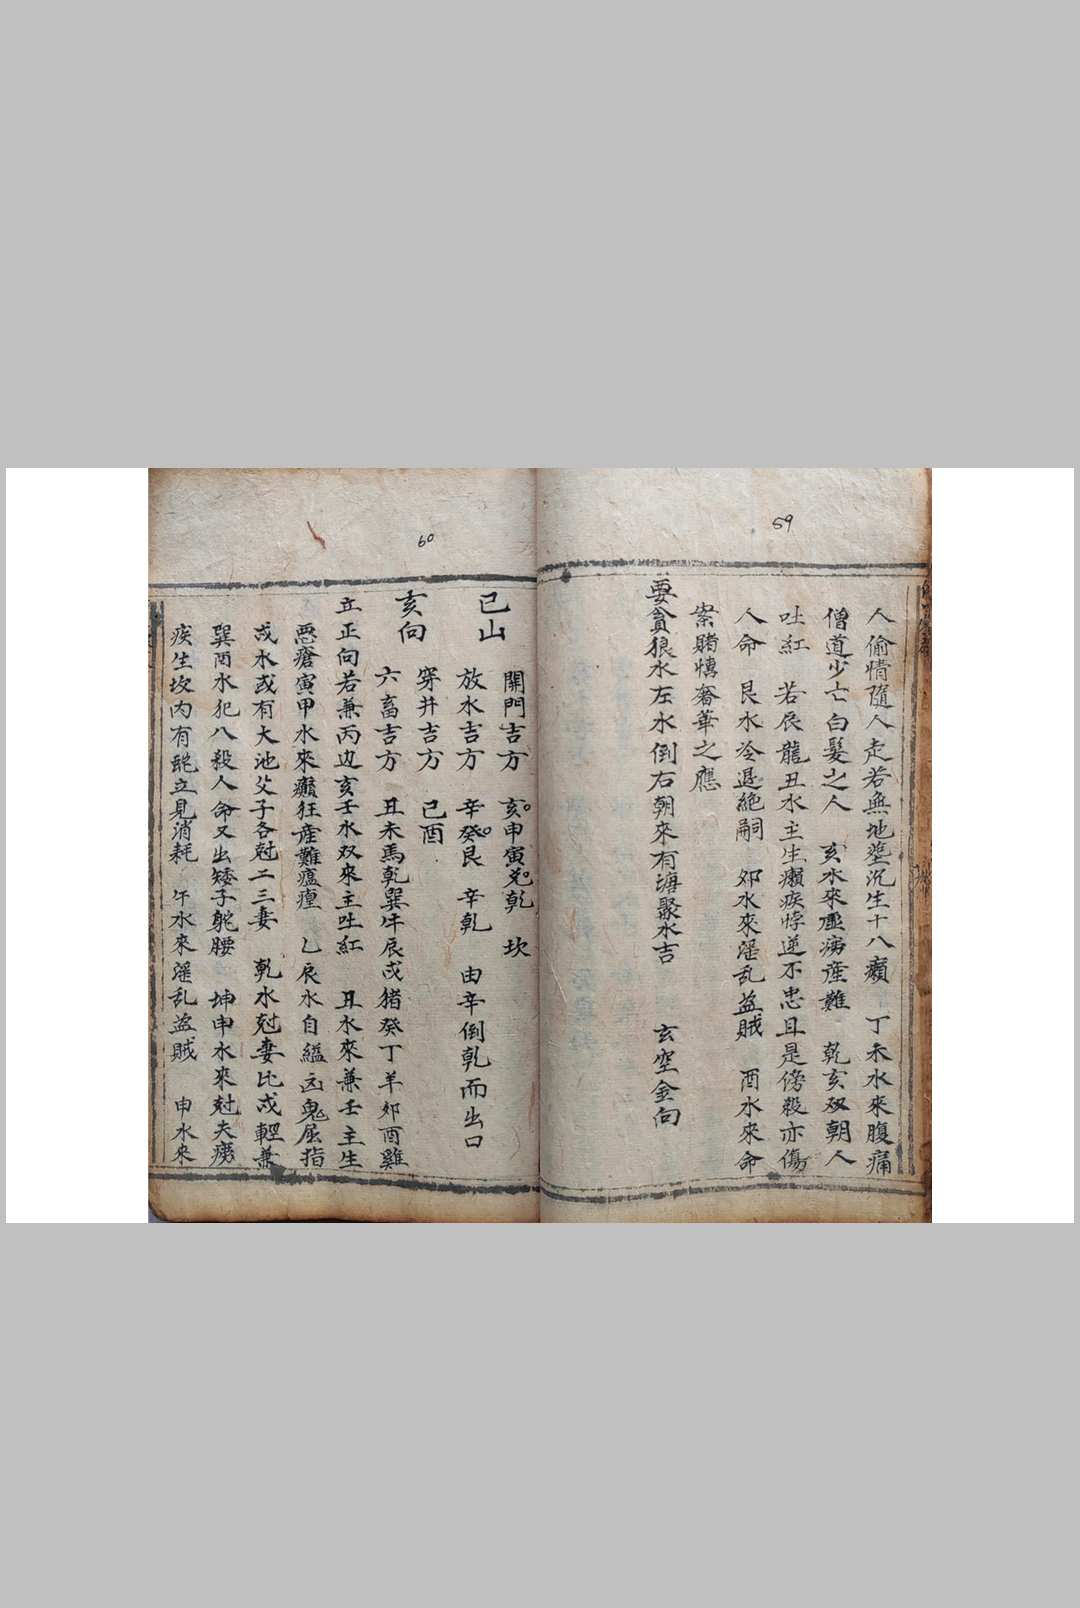 59
人偷情隨人走若無地塟沉生十八癩 丁未水來腹痛
僧道少亡白髮之人 亥水來虛癆産難 乾亥双朝人
吐紅 若辰龍丑水主生癩疾悖逆不忠且是傍殺亦傷
人命 艮水冷退絶嗣 夘水來滛乱盗賊 酉水來命
案賭慎奢華之應
要貪狼水左水倒右朝來有塘聚水吉 玄空金向
60
巳山
開門吉方 亥申寅兑乾 坎
放水吉方 辛癸艮 辛乾 由辛倒乾而出口
穿井吉方 巳酉
亥向
六畜吉方 丑未馬乾巽牛辰戍猪癸丁羊夘酉雞
立正向若兼丙边亥壬水双來主吐紅 丑水來兼壬主生
悪瘡寅甲水來癲狂産難瘟瘟 乙辰水自縊凶鬼屈指
戍水或有大池父子各尅二三妻 乾水尅妻比戍輕兼
巽酉水犯八殺人命又出矮子鴕腰 坤申水來尅夫癆
疾生坟內有蛇立見消耗 午水來滛乱盗賊 申水來